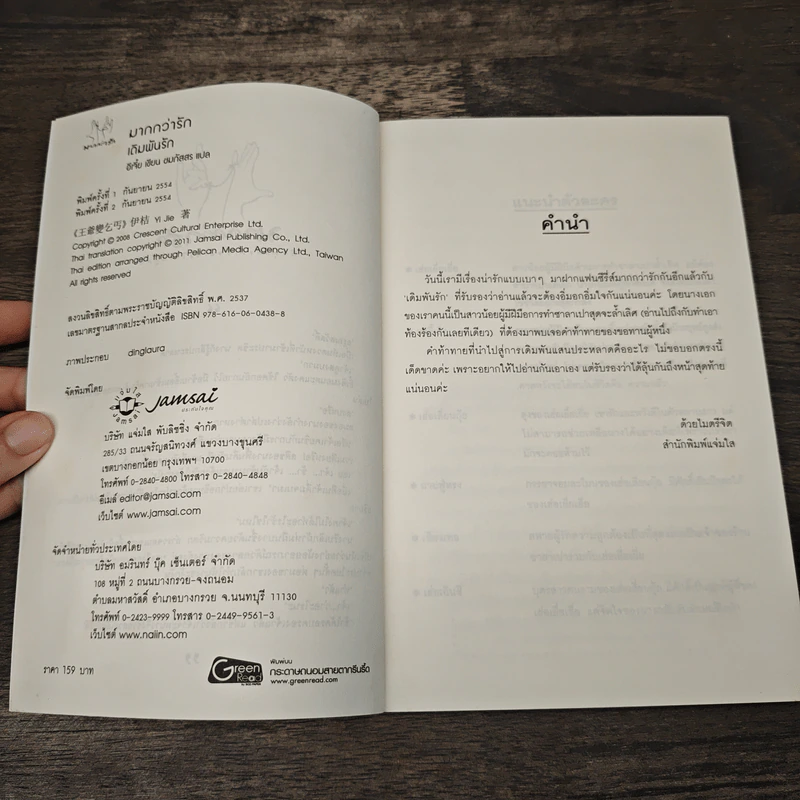 มากกว่ารัก
เดิมพันรัก
อีเจี๋ย เขียน ฮมภัสสร แปล
พิมพ์ครั้งที่ 1 กันยายน 2554
พิมพ์ครั้งที่ 2 กันยายน 2554
《王爺變乞丐》伊桔 Yi Jie 著
Copyright © 2008 Crescent Cultural Enterprise Ltd.
Thai translation copyright © 2011 Jamsai Publishing Co., Ltd.
Thai edition arranged through Pelican Media Agency Ltd., Taiwan
All rights reserved
สงวนลิขสิทธิ์ตามพระราชบัญญัติลิขสิทธิ์ พ.ศ. 2537
เลขมาตรฐานสากลประจำหนังสือ ISBN 978-616-06-0438-8
ภาพประกอบ dinglaura
จัดพิมพ์โดย
jamsai
บริษัท แจ่มใส พับลิชชิ่ง จำกัด
285/33 ถนนจรัญสนิทวงศ์ แขวงบางขุนศรี
เขตบางกอกน้อย กรุงเทพฯ 10700
โทรศัพท์ 0-2840-4800 โทรสาร 0-2840-4848
อีเมล์ editor@jamsai.com
เว็บไซต์ www.jamsai.com
จัดจำหน่ายทั่วประเทศโดย
บริษัท อมรินทร์ บุ๊ค เซ็นเตอร์ จำกัด
108 หมู่ที่ 2 ถนนบางกรวย-จงถนอม
ตำบลมหาสวัสดิ์ อำเภอบางกรวย จ.นนทบุรี 11130
โทรศัพท์ 0-2423-9999 โทรสาร 0-2449-9561-3
เว็บไซต์ www.naiin.com
ราคา 159 บาท
Green
Read
พิมพ์บน
กระดาษถนอมสายตากรีนรี้ด
www.greenread.com
คำนำ
วันนี้เรามีเรื่องน่ารักแบบเบาๆ มาฝากแฟนซีรี่ส์มากกว่ารักกันอีกแล้วกับ
'เดิมพันรัก' ที่รับรองว่าอ่านแล้วจะต้องอิ่มอกอิ่มใจกันแน่นอนค่ะ โดยนางเอก
ของเราคนนี้เป็นสาวน้อยผู้มีฝีมือการทำซาลาเปาสุดจะล้ำเลิศ (อ่านไปถึงกับทำเอา
ท้องร้องกันเลยทีเดียว) ที่ต้องมาพบเจอคำท้าทายของขอทานผู้หนึ่ง
คำท้าทายที่นำไปสู่การเดิมพันแสนประหลาดคืออะไร ไม่ขอบอกตรงนี้
เด็ดขาดค่ะ เพราะอยากให้ไปอ่านกันเอาเอง แต่รับรองว่าได้ลุ้นกันถึงหน้าสุดท้าย
แน่นอนค่ะ
ด้วยไมตรีจิต
สำนักพิมพ์แจ่มใส